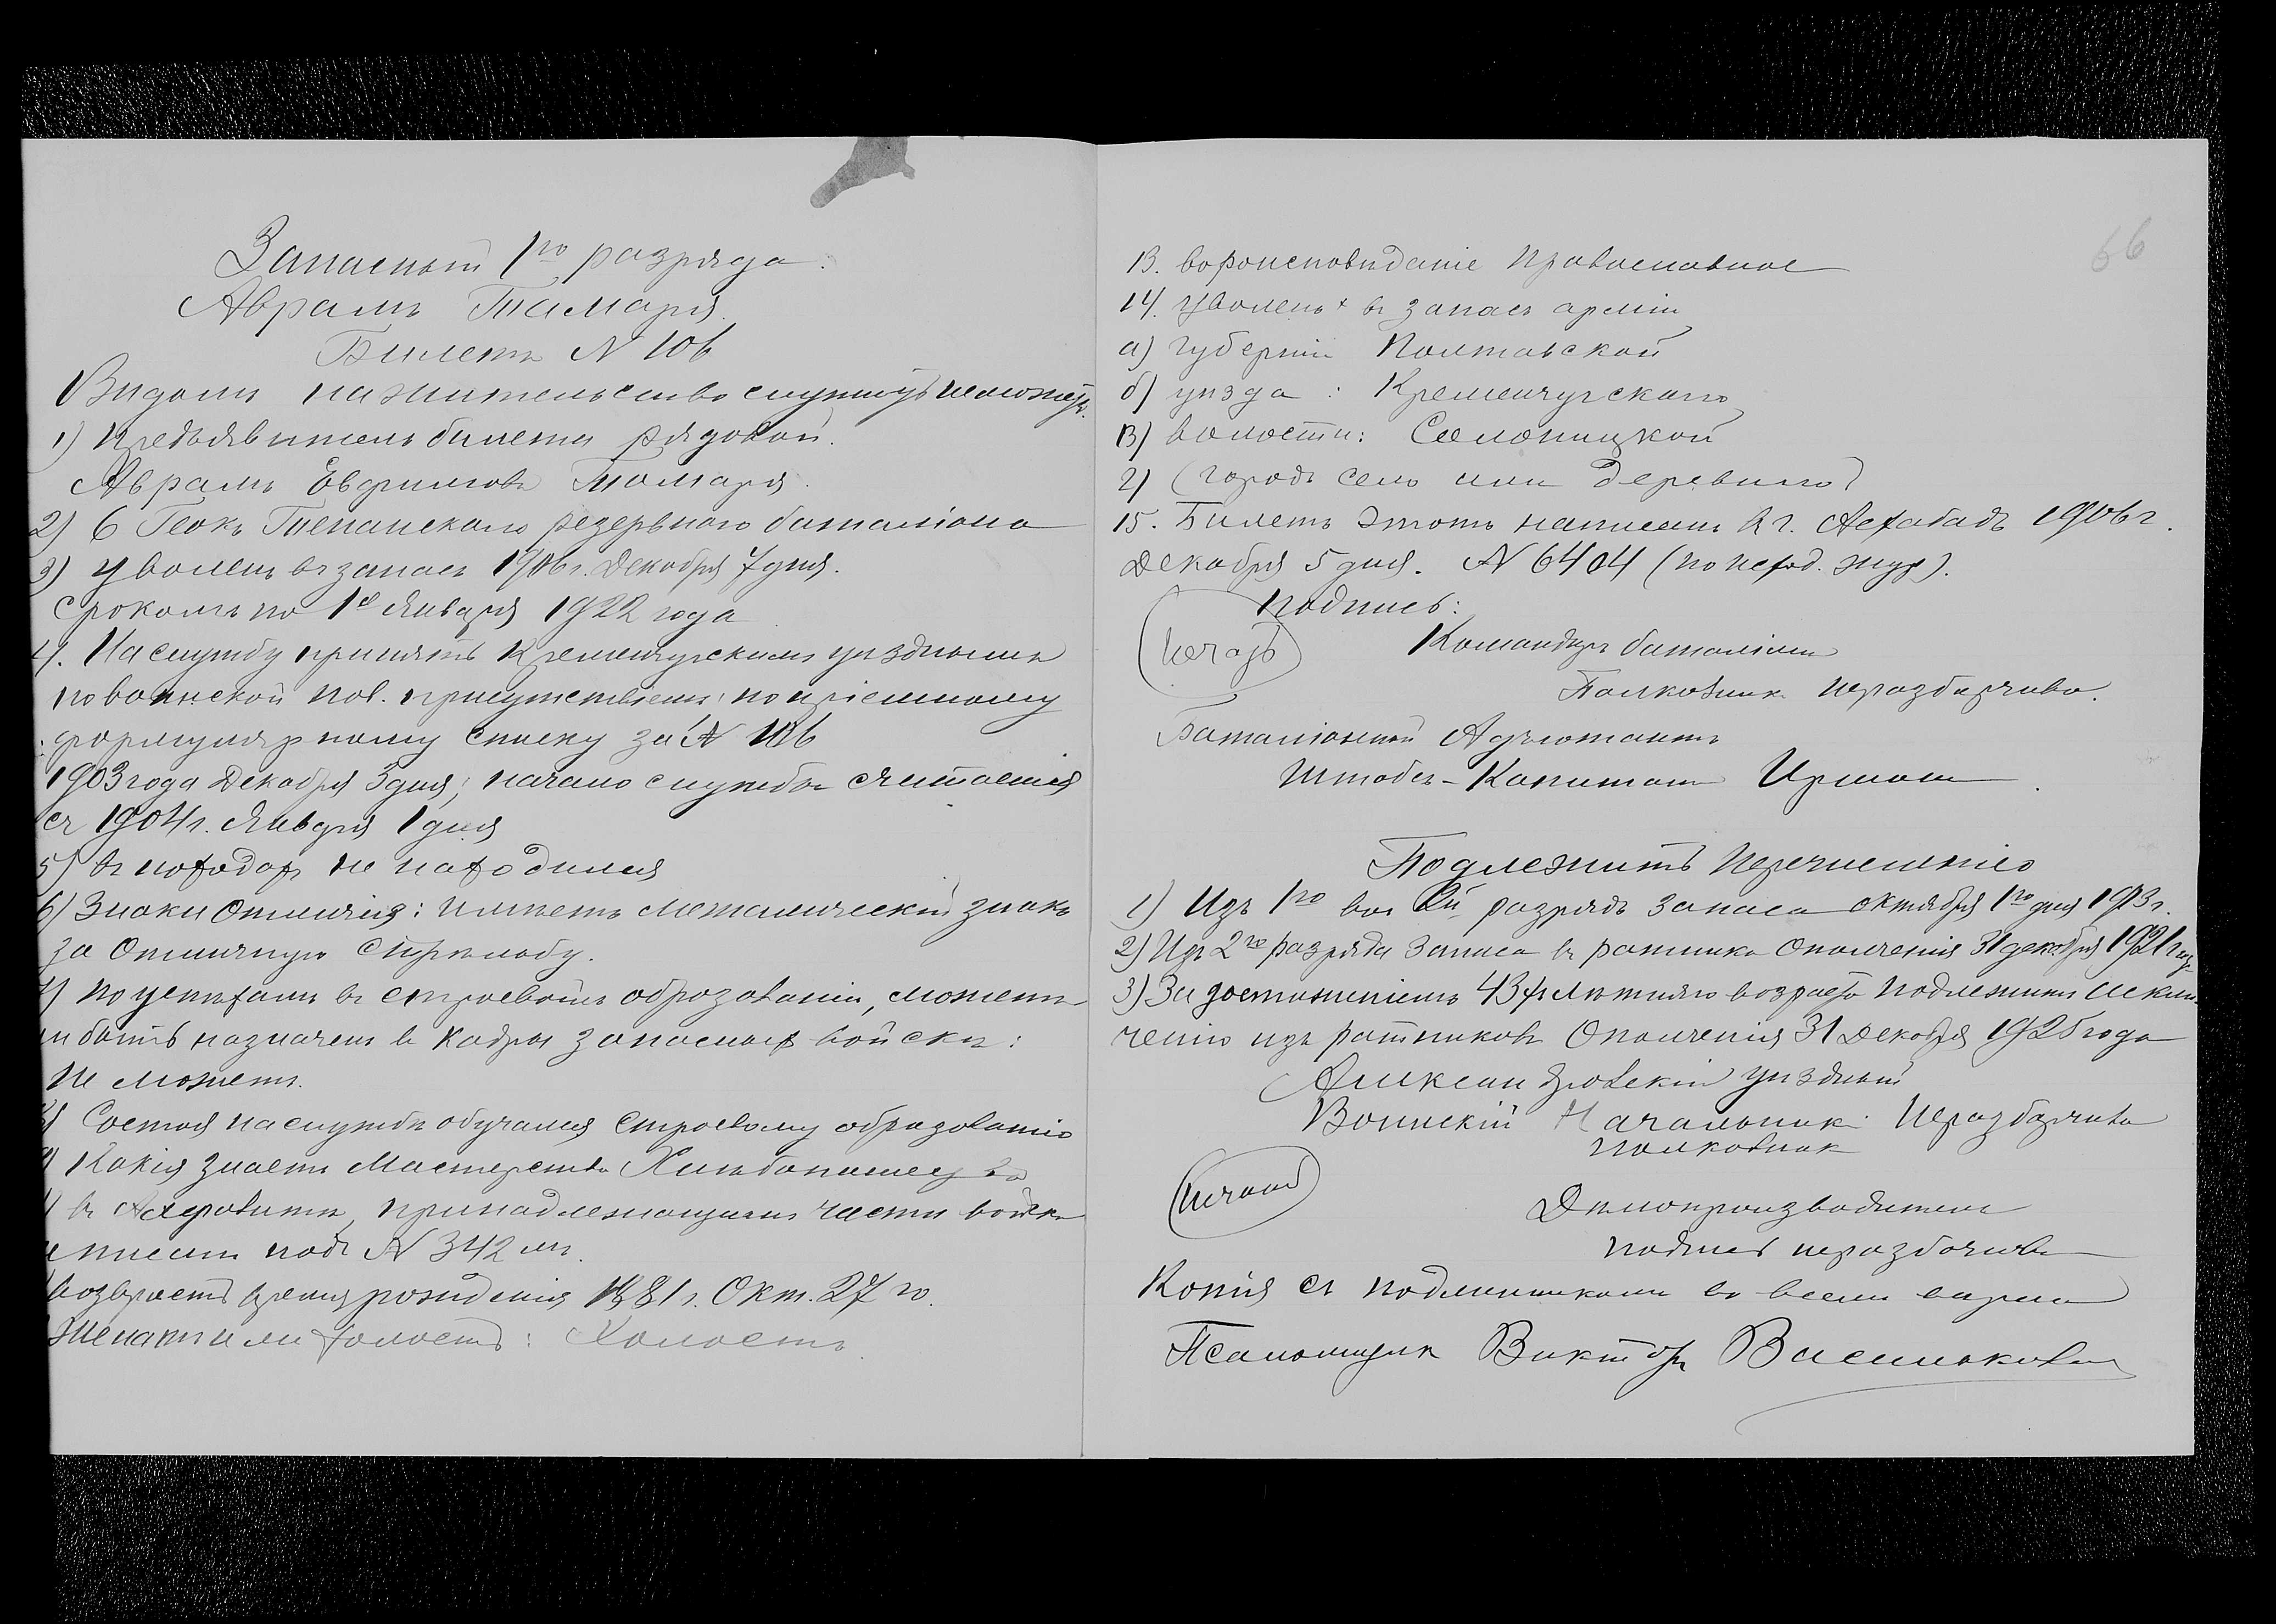 Запасный 1го разряда.
Аврамъ Тамаря.
Билетъ N 106
Видомъ на жительство служить не можетъ.
1) Предъявитель билета рядовой.
Аврамъ Евфимовъ Томаря.
2) 6 Геокъ Тепенскаго резервнаго баталіона
3) уволенъ въ запасъ 1906 г. Декабря 7 дня.
срокомъ по 1е Января 1922 года
4. На службу принятъ Кременчугскимъ уѣзднымъ
по воинской пов. присутствіемъ по пріемному
формулярному списку за N 106
1903 года Декабря 3 дня; начало службы считается
съ 1904 г. Января 1 дня
5) въ походахъ не находился
6) Знаки Отличія: имѣетъ металическій знакъ
за Отличную стрѣльбу.
7) по успѣхамъ въ строевомъ образованіи, можетъ
ли быть назначенъ в кадры запасныхъ войскъ:
Не можетъ.
8) Состоя на службѣ обучался строевому образованію
9) Какія знаетъ мастерства Хлѣбопашец
въ принадлежащими части войскъ
подъ N 342 мъ.
возврастъ время рожденія 1881 г. Окт. 27 го.
Женатъ или холостъ: Холостъ
66
13. вѣроисповѣданіе Православное
14. уволенъ в запасъ арміи
а) губерніи Полтавской
б) уѣзда: Кременчугскаго
в) волости: Солоницкой
г) (городъ село или деревню)
15. Билетъ этотъ написанъ в г. Асхабадъ 1906 г.
Декабря 5 дня. N 6404 (по исход. жур).
подпись:
Печать
Командиръ баталіона
Полковникъ неразборчиво.
Баталіонный Адъютантъ
Штабсъ-Капитанъ
Подлежитъ перечисленію
1) Изъ 1го во 2й разрядъ запаса октября 1го дня 1913 г.
2) Изъ 2го разряда запаса в ратники ополченія 31 декабря 1921 года
3) За достиженіемъ 43х лѣтняго возраста подлежитъ исклю-
ченію изъ ратниковъ Ополченія 31 Декабря 1925 года
Александровскій уѣздный
Воинскій Начальникъ: Неразборчиво
полковник
печать
Дѣлопроизводитель
подпись неразборчива
Копія съ подлинникомъ во всемъ вѣрна
Псаломщикъ Викторъ Васильковъ